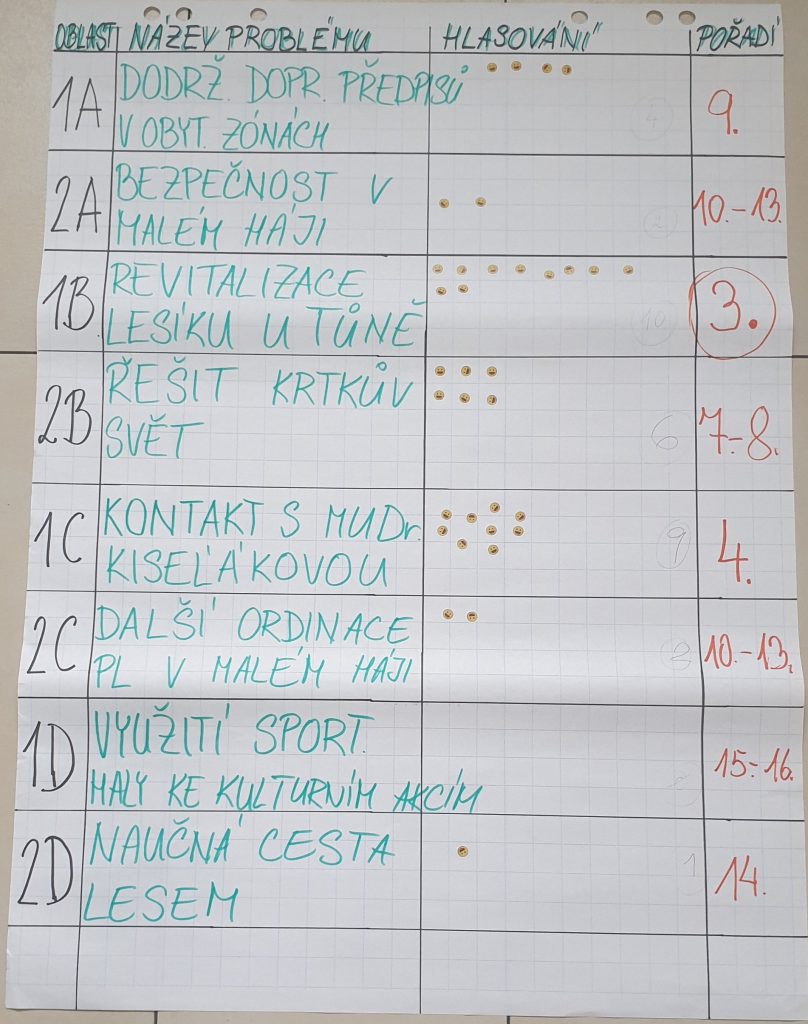 OBLAST NÁZEV PROBLÉMU HLASOVÁNÍ POŘADÍ
1A DODRŽ. DOPR. PŘEDPISŮ
V OBYT. ZÓNÁCH
4 9.
2A BEZPEČNOST V
MALÉM HÁJI
2 10.-13.
1B REVITALIZACE
LESÍKU U TŮNĚ
10 3.
2B ŘEŠIT KRTKŮV
SVĚT
6 7.-8.
1C KONTAKT S MUDr.
KISEĽÁKOVOU
9 4.
2C DALŠÍ ORDINACE
PL V MALÉM HÁJI
2 10.-13.
1D VYUŽITÍ SPORT.
HALY KE KULTURNÍM AKCÍM
15.-16.
2D NAUČNÁ CESTA
LESEM
1 14.